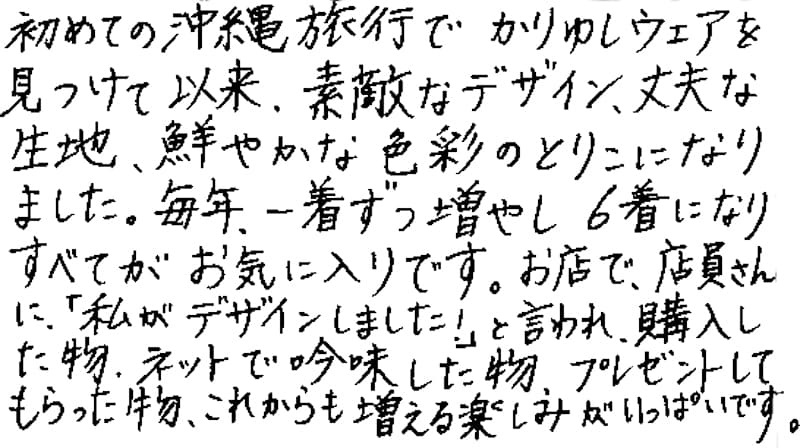 初めての沖縄旅行で かりゆしウェアを
見つけて以来、素敵なデザイン、丈夫な
生地、鮮やかな色彩のとりこになり
ました。毎年、一着ずつ増やし 6着になり
すべてが お気に入りです。お店で、店員さん
に、「私が デザインしました!」と言われ、購入し
た物、ネットで吟味した物、プレゼントして
もらった物、これからも増える楽しみがいっぱいです。